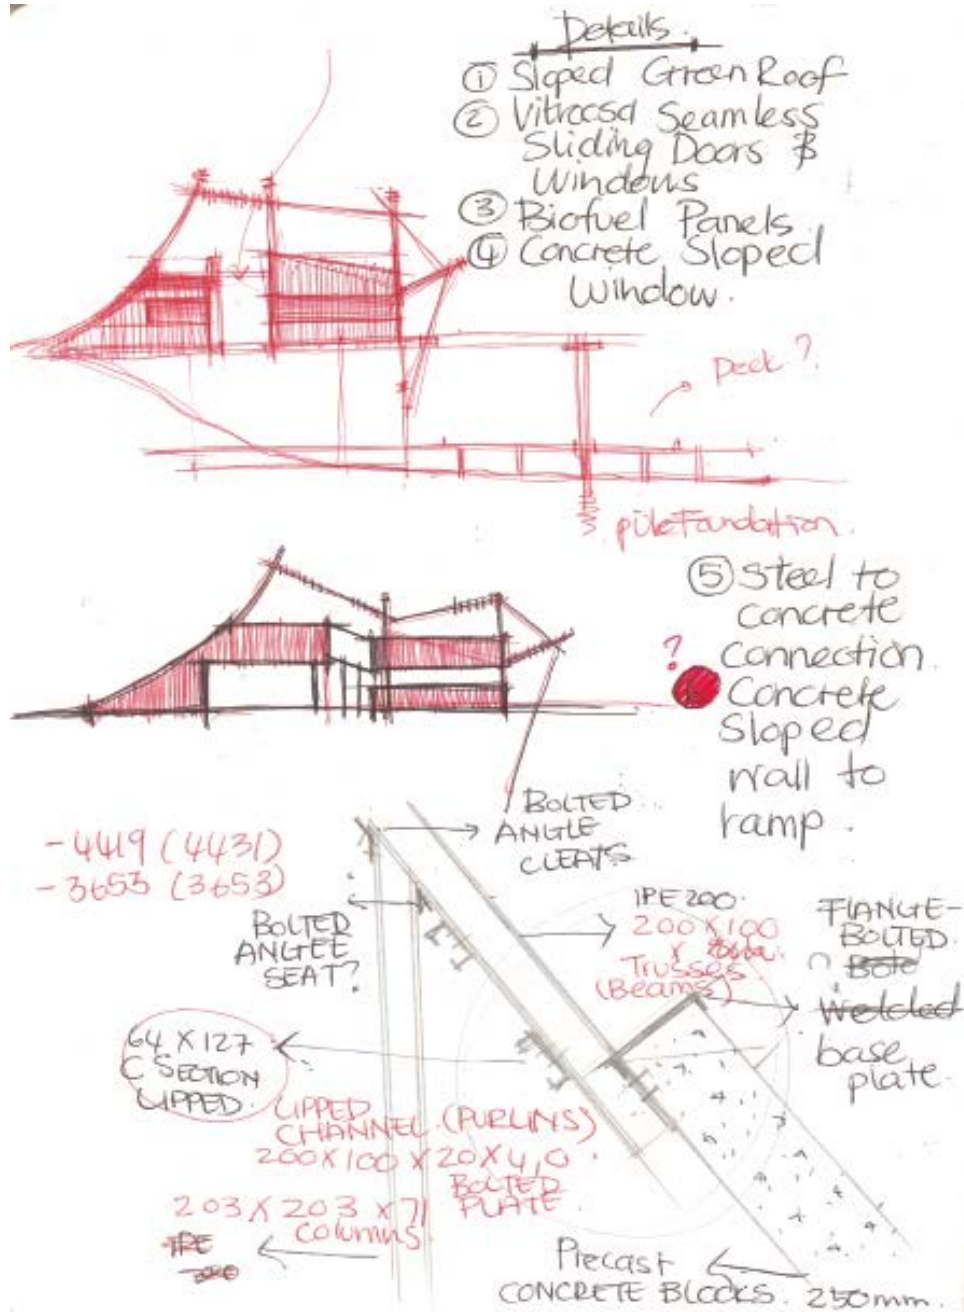 Details.
① Sloped Green Roof
② Vitrocsa Seamless
Sliding Doors &
Windows
③ Biofuel Panels.
④ Concrete Sloped
Window.
Deck?
pileFoundation.
⑤ Steel to
Concrete
Connection.
?
Concrete
Sloped
wall to
ramp.
BOLTED
ANGLE
CLEATS
-4419 (4431)
-3653 (3653)
BOLTED
ANGLE
SEAT?
IPE 200.
200 X 100
x
Trusses.
(Beams)
FLANGE-
BOLTED.
Bolted
Welded
base
plate.
64 X 127
C SECTION
LIPPED.
LIPPED
CHANNEL (PURLINS)
200X100 X 20X4,0.
BOLTED
PLATE
203 X 203 X 71
Columns
IPE
200
Precast
CONCRETE BLOCKS. 250mm.